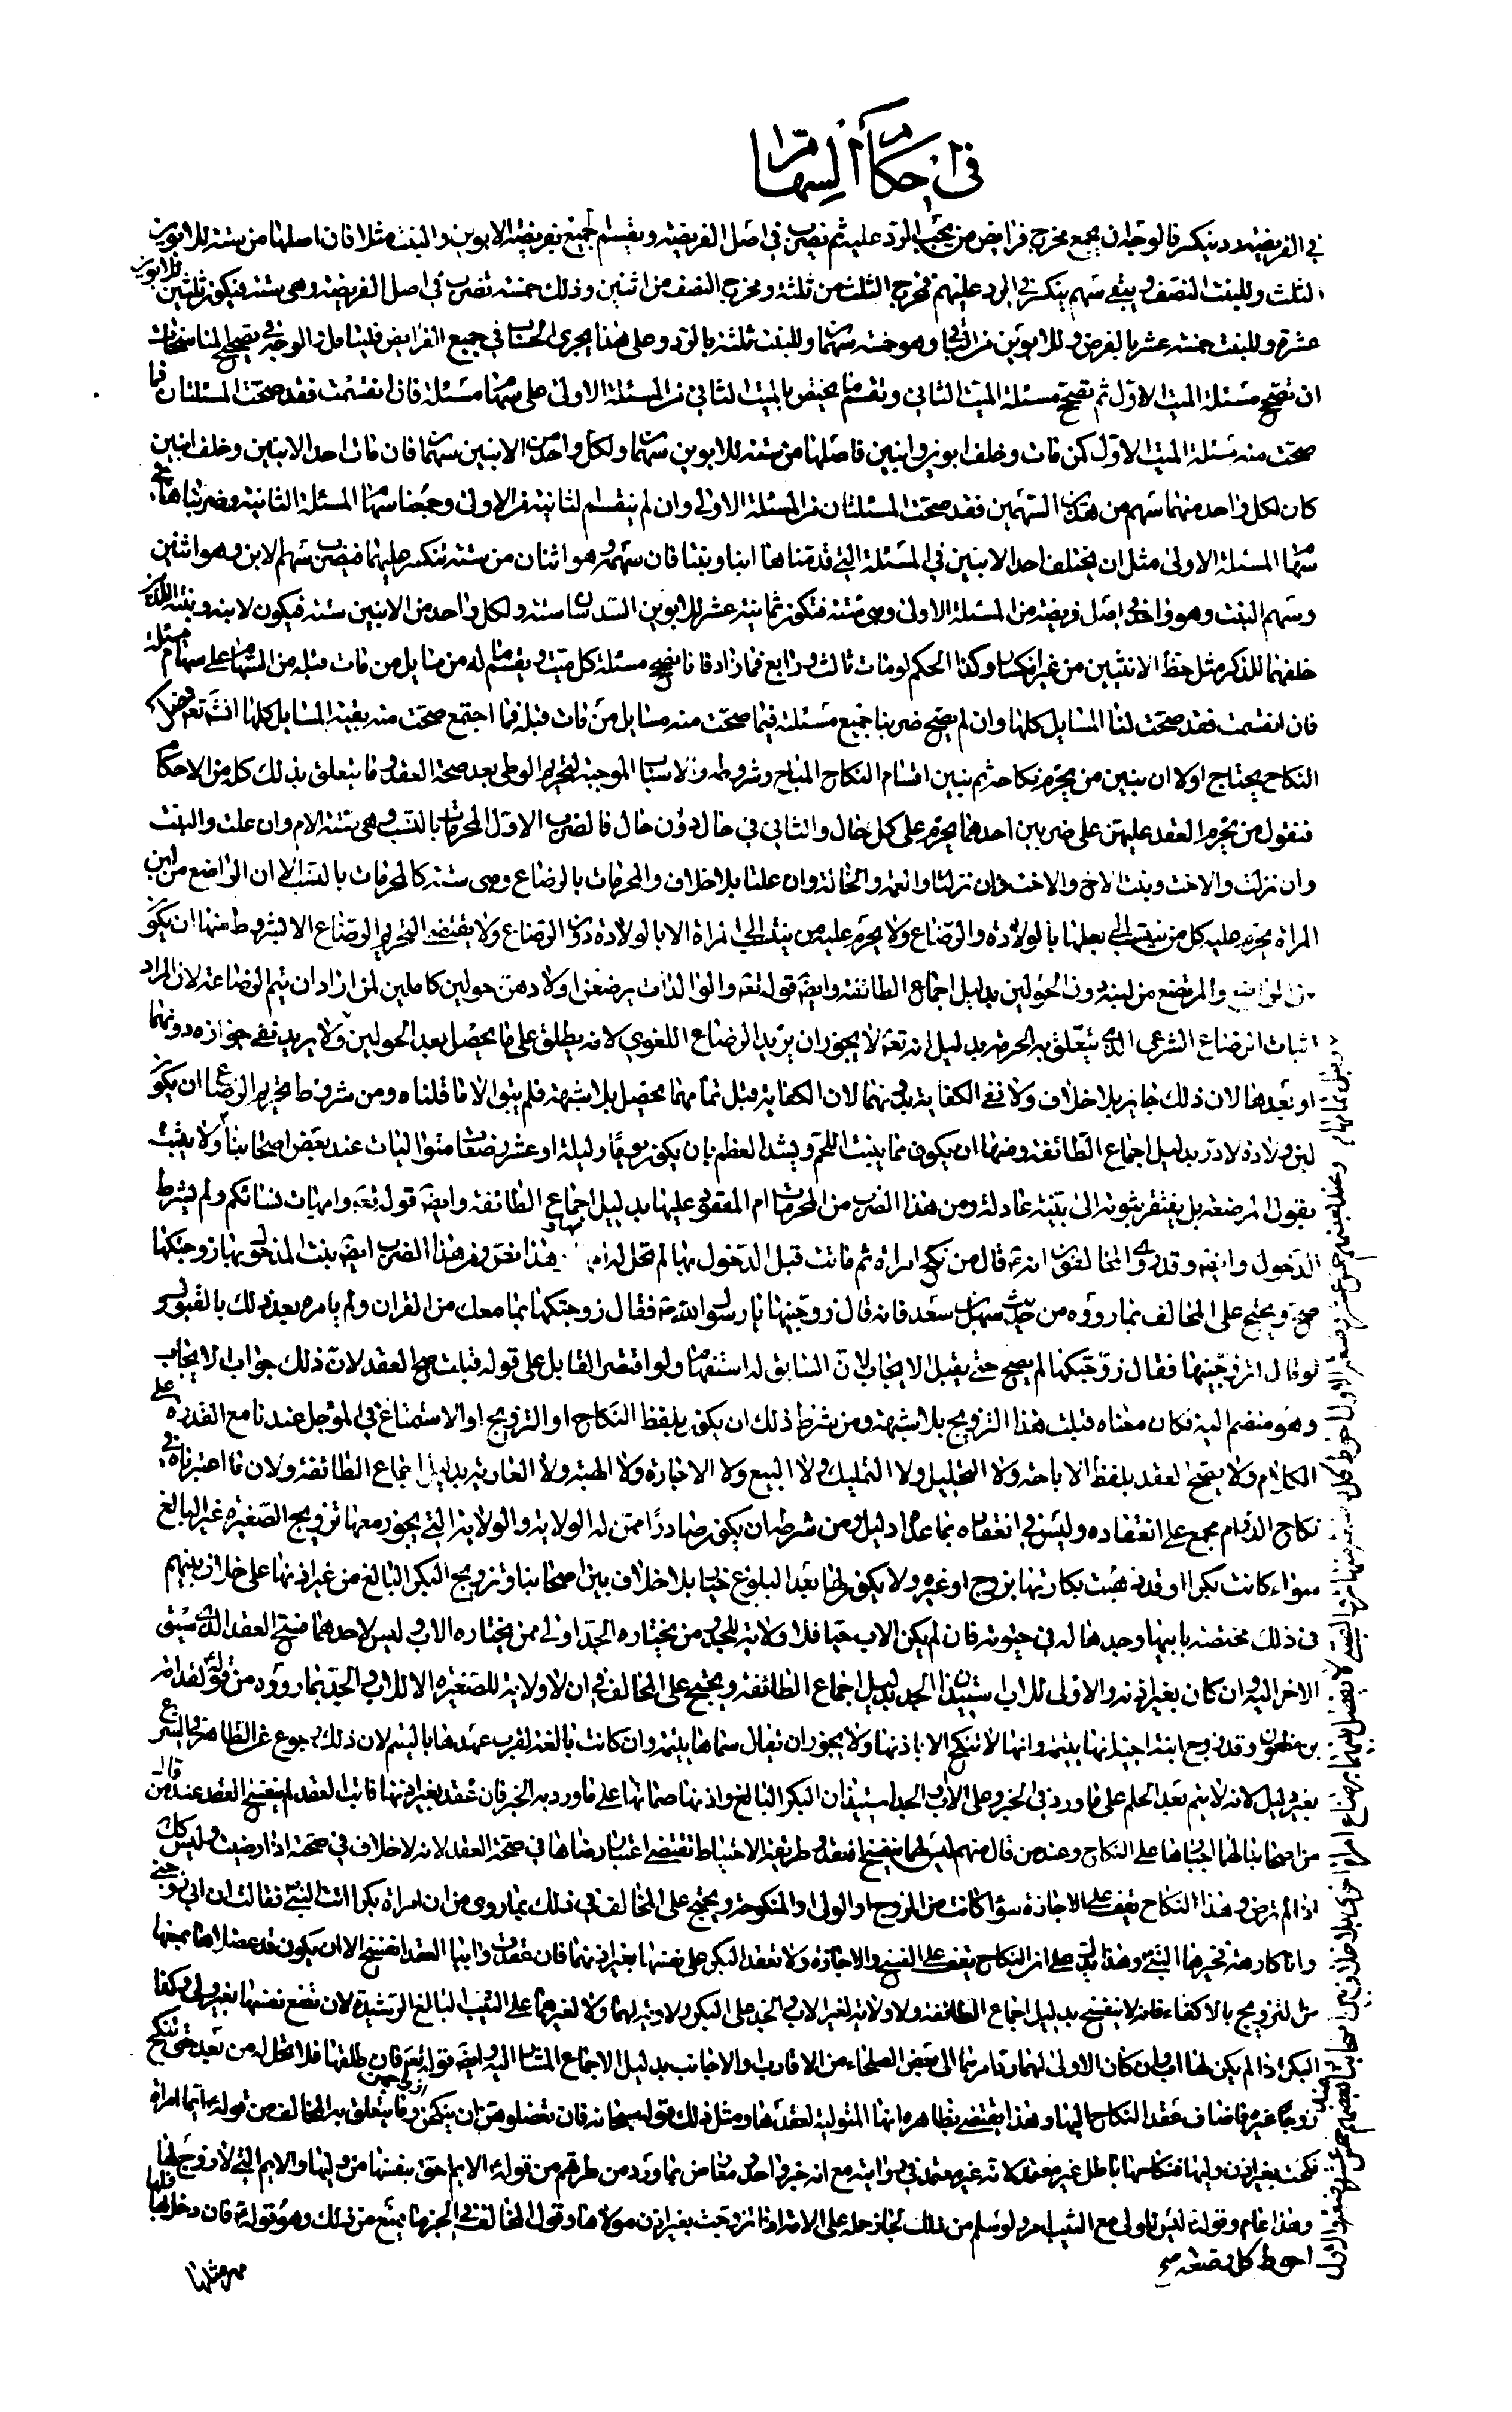 في احكام السهام
في الفريضة رد ينكسر فالوجه ان يجمع مخرج فرايض من يجب الرد عليه ثم نضرب في اصل الفريضة ويقسم الجميع كفريضة الابوين والبنت مثلا فان اصلها من ستة للابوين
الثلث وللبنت النصف ويبقى سهم ينكسر في الرد عليهم فمخرج الثلث من ثلثة ومخرج النصف من اثنين وذلك خمسة تضرب في اصل الفريضة وهي ستة فيكون ثلثين للابوين
عشرة وللبنت خمسة عشر بالفرض وللابوين من الباقي وهو خمسة سهمان وللبنت ثلثة بالرد وعلى هذا يجري الحساب في جميع الفرايض فليتامل والوجه في تصحيح المناسخات
ان تصحح مسئلة الميت الاول ثم تصحح مسئلة الميت الثاني وتقسم ما يختص بالميت الثاني من المسئلة الاولى على سهام مسئلة فان انقسمت فقد صحت المسئلتان مما
صحت منه مسئلة الميت الاول كمن مات وخلف ابوين وابنين فاصلها من ستة للابوين سهمان ولكل واحد من الابنين سهمان فان مات احد الابنين وخلف ابنين
كان لكل واحد منهما سهم من هذين السهمين فقد صحت المسئلتان من المسئلة الاولى وان لم ينقسم الثانية من الاولى وجمعنا سهام المسئلة الثانية وضربناها في
سهام المسئلة الاولى مثل ان يخلف احد الابنين في المسئلة التي قدمناها ابنا وبنتا فان سهمه وهو اثنان من ستة تنكسر عليهما فيضرب سهم الابن وهو اثنين
وسهم البنت وهو واحد في اصل فريضة من المسئلة الاولى وهي ستة فتكون ثمانية عشر للابوين السدسان ستة ولكل واحد من الابنين ستة فيكون لابنه وبنته اللذين
خلفهما للذكر مثل حظ الانثيين من غير انكسار وكذا الحكم لو مات ثالث ورابع فما زاد فانا نصحح مسئلة كل ميت ويقسم ما له من مسايل من مات قبله من السهام على سهام مسئلة
فان انقسمت فقد صحت لنا المسايل كلها وان لم يصح ضربنا جميع مسئلة فيما صحت منه مسايل من مات قبله فما اجتمع صحت منه بقية المسايل كلها انشاء تعالى
النكاح يحتاج اولا ان نبين من يحرم نكاحه ثم نبين اقسام النكاح المباح وشروطه والاسباب الموجبة لتحريم الوطي بعد صحة العقد وما يتعلق بذلك كله من الاحكام
فنقول من يحرم العقد عليهن على ضربين احدهما يحرم على كل حال والثاني في حال دون حال فالضرب الاول المحرمات بالنسب وهي ستة الام وان علت والبنت
وان نزلت والاخت وبنت الاخ والاخت وان نزلتا والعمة والخالة وان علتا بلا خلاف والمحرمات بالرضاع وهي ستة كالمحرمات بالنسب الا ان الراضع من لبن
المراة يحرم عليه كل من ينتسب الى بعلها بالولادة والرضاع ولا يحرم عليه من ينتسب الى المراة الا بالولادة دون الرضاع ولا يقتضي التحريم الرضاع الا بشروط منها ان يكون
والمرتضع من لبنه دون الحولين بدليل اجماع الطائفة وايضا قوله تعه والوالدات يرضعن اولادهن حولين كاملين لمن اراد ان يتم الرضاعة لان المراد
اثبات الرضاع الشرعي الذي يتعلق به الحرمة بدليل انه تعه لا يجوز ان يريد الرضاع اللغوي لانه يطلق على ما يحصل بعد الحولين ولا يريد نفي جوازه دونهما
او بعدهما لان ذلك جايز بلا خلاف ولا نفي الكفاية بدونهما لان الكفاية قبل تمامهما يحصل بلا شبهة فلم يبق الا ما قلناه ومن شروط تحريم الرضاع ان يكون
لبن ولادة لا در بدليل اجماع الطائفة ومنها ان يكون مما ينبت اللحم ويشد العظم بان يكون يوما وليلة او عشر رضعات متواليات عند بعض اصحابنا ولا يثبت
بقول المرضعة بل يفتقر ثبوته الى بينة عادلة ومن هذا الضرب من المحرمات ام المعقود عليها بدليل اجماع الطائفة وايضا قوله تعه وامهات نسائكم ولم يشرط
الدخول وايضا وقد روى المخالفون انه ع قال من نكح امراة ثم ماتت قبل الدخول بها لم تحل له امها وهذا نص ومن هذا الضرب ايضا بنت المدخول بها زوجتكها
صح ويحتج على المخالف بما رووه من حديث سهل بن سعد فانه قال زوجنيها يا رسول الله ص فقال زوجتكها بما معك من القران ولم يامره بعد ذلك بالقبول و
لو قال اتزوجنيها فقال زوجتكها لم يصح حتى يقبل الايجاب لان السابق له استفهام ولو اقتصر القابل على قوله قبلت صح العقد لان ذلك جواب الايجاب
وهو منضم اليه فكان معناه قبلت هذا التزويج بلا شبهة ومن شرط ذلك ان يكون بلفظ النكاح او التزويج او الاستمتاع في المؤجل عندنا مع القدرة على
الكلام ولا يصح العقد بلفظ الاباحة ولا التحليل ولا التمليك ولا البيع ولا الاجارة ولا الهبة ولا العارية بدليل اجماع الطائفة ولان ما اعتبرناه في
نكاح الدوام مجمع على انعقاده وليس في انعقاده بما عداه دليل ومن شرطه ان يكون صادرا ممن له الولاية والولاية التي يجوز معها تزويج الصغيرة غير البالغ
سواء كانت بكرا او قد ذهبت بكارتها بزوج او غيره ولا يكون لها بعد البلوغ خيار بلا خلاف بين اصحابنا وتزويج البكر البالغ من غير اذنها على خلاف بينهم
في ذلك مختصة بابيها وجدها له في حيوته فان لم يكن الاب حيا فلا ولاية للجد ومن يختاره الجد اولى ممن يختاره الاب وليس لاحدهما فسخ العقد الذي سبق
الاخر اليه وان كان بغير اذنه والاولى للاب استيذان الجد بدليل اجماع الطائفة ويحتج على المخالف في ان لا ولاية للصغيرة الا للاب والجد بما رووه من قوله لقدامة
بن مظعون وقد زوج ابنة اخيه انها يتيمة وانها لا تنكح الا باذنها ولا يجوز ان يقال سماها يتيمة وان كانت بالغة لقرب عهدها باليتم لان ذلك رجوع عن الظاهر في الشرع
بغير دليل لانه لا يتم بعد الحلم على ما ورد في الخبر وعلى الاب والجد استيذان البكر البالغ واذنها صماتها على ما ورد به الخبر فان عقد بغير اذنها فابت العقد لم ينفسخ العقد عند من قال
من اصحابنا لهما اجبارها على النكاح وعند من قال منهم ليس لهما ينفسخ العقد وطريقة الاحتياط تقتضي اعتبار رضاها في صحة العقد لانه لا خلاف في صحته اذا رضيت وليس كك
اذا لم ترض وهذا النكاح يقف على الاجازة سواء كانت من الزوج او الولي او المنكوحة ويحتج على المخالف في ذلك بما روي من ان امراة بكرا اتت النبي ص فقالت ان ابي زوجني
وانا كارهة فخيرها النبي ص وهذا يدل على ان النكاح يقف على الفسخ والاجازة ولا تعقد البكر على نفسها بغير اذنهما فان عقدت وابيا العقد انفسخ الا ان يكون قد عضلاها بمنعها
من التزويج بالاكفاء فانه لا ينفسخ بدليل اجماع الطائفة ولا ولاية لغير الاب والجد على البكر ولا ولاية لهما ولا لغيرهما على الثيب البالغ الرشيدة لان تضع نفسها بغير ولي وكذا
البكر اذا لم يكن لها اب وان كان الاولى لهما رد امرهما الى بعض الصلحاء من الاقارب والاجانب بدليل الاجماع المشار اليه وايضا قوله تعه فان طلقها فلا تحل له من بعد حتى تنكح
زوجا غيره فاضاف عقد النكاح اليها وهذا يقتضي بظاهره انها المتولية لعقدها ومثل ذلك قوله سبحانه فان تعضلوهن ان ينكحن ازواجهن وما يتعلق به المخالف من قوله ع ايما امراة
نكحت بغير اذن وليها فنكاحها باطل غير معتمد لانه غير معتمد في روايته مع انه خبر واحد ومعارض بما ورد من طرقهم من قوله ع الايم احق بنفسها من وليها والايم التي لا زوج لها
وهذا عام وقوله ع ليس للولي مع الثيب امر ولو سلم من ذلك لجاز حمله على الامة اذا تزوجت بغير اذن مولاها وقول المخالف في الخبر ما يمنع من ذلك وهو قوله ع فان دخل بها فلها
مهر مثلها
احوط كل رضعة صح